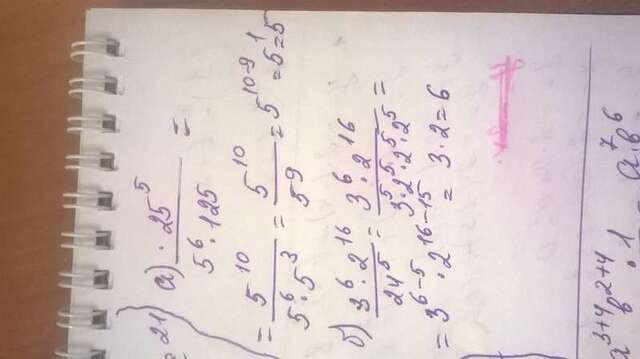 а) 25⁵ / 5⁶·125 =
= 5¹⁰ / 5⁶·5³ = 5¹⁰ / 5⁹ = 5¹⁰⁻⁹ = 5¹ = 5
б) 3⁶·2¹⁶ / 24⁵ = 3⁶·2¹⁶ / 3⁵·2⁵·2⁵·2⁵ =
= 3⁶⁻⁵·2¹⁶⁻¹⁵ = 3·2 = 6